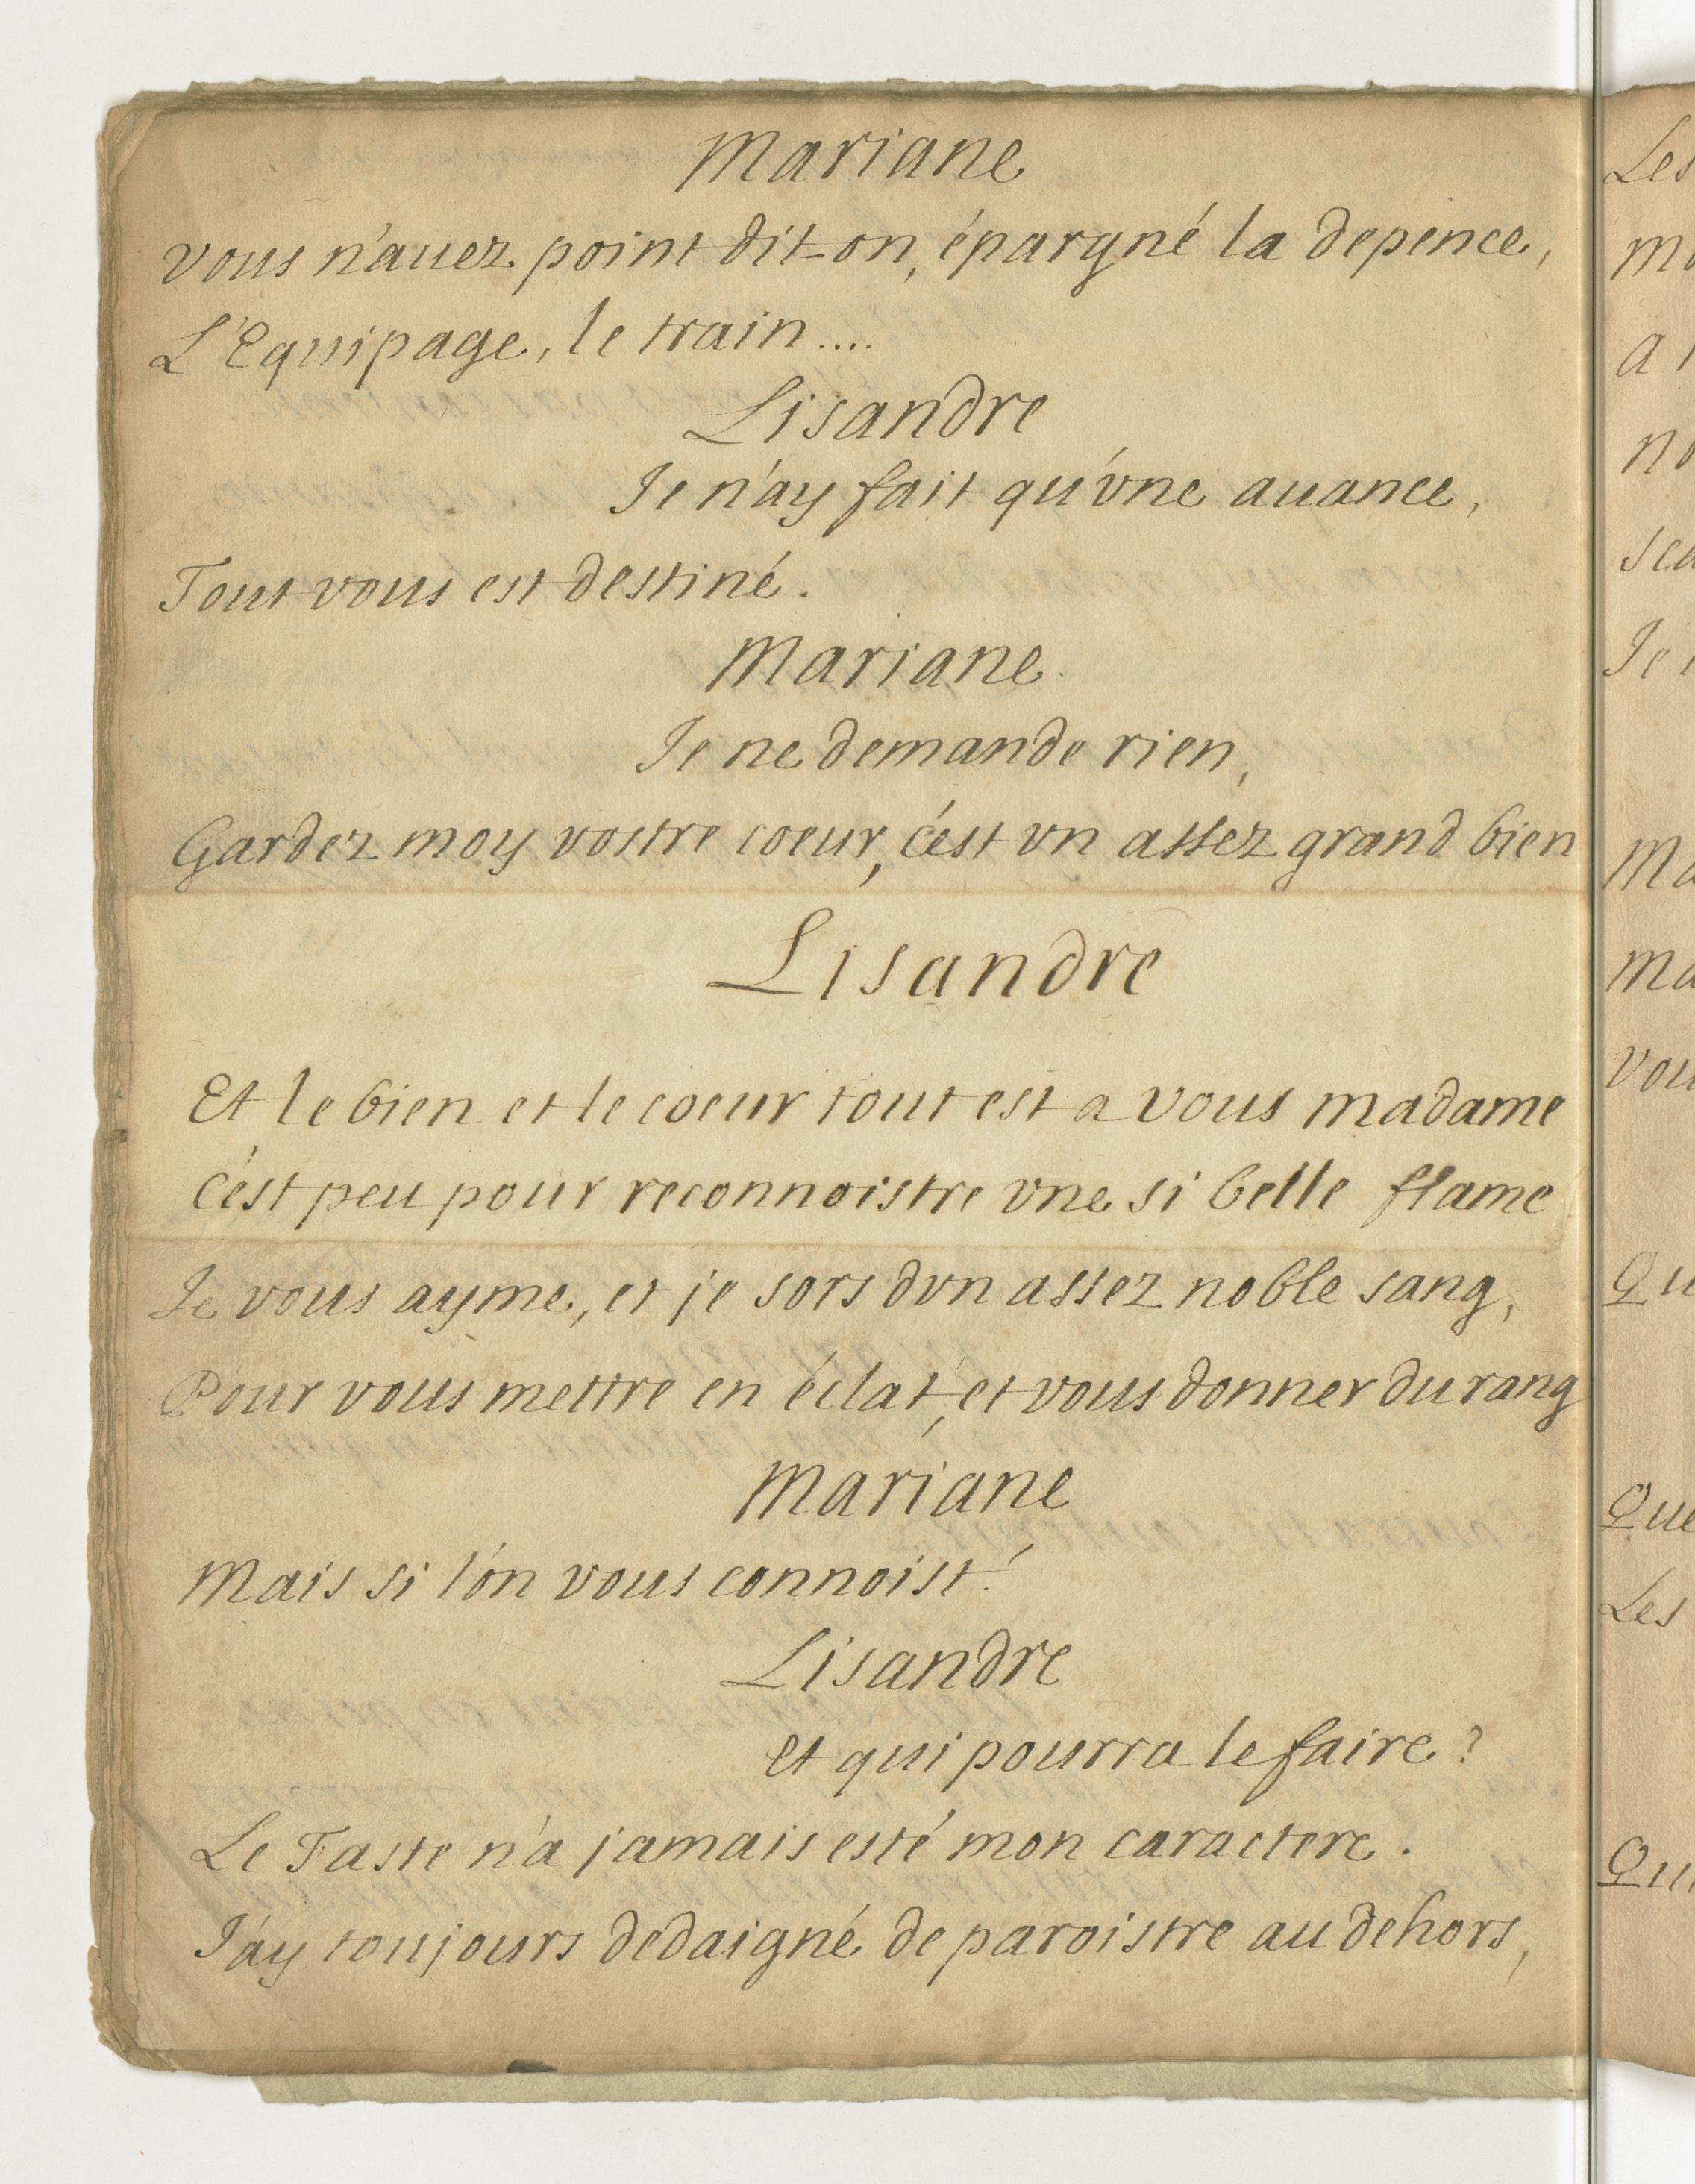 Mariane
vous n'auez point dit-on, épargné la depence,
L'Equipage, le train....
Lisandre
Je n'ay fait qu'vne auance,
Tout vous est destiné.
Mariane
Je ne demande rien,
Gardez moy vostre coeur, c'est vn assez grand bien
Lisandre
Et le bien et le coeur tout est a vous madame
C'est peu pour reconnoistre vne si belle flame
Je vous ayme, et je sors dvn assez noble sang,
Pour vous mettre en éclat, et vous donner du rang
Mariane
Mais si l'on vous connoist!
Lisandre
Et qui pourra le faire?
Le Faste n'a jamais esté mon caractere.
J'ay toujours dedaigné de paroistre au dehors,
Les
A
Je
Qu
Que
Les